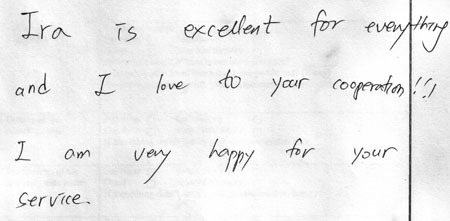 Ira is excellent for everything
and I love to your cooperation!!!
I am very happy for your
service.